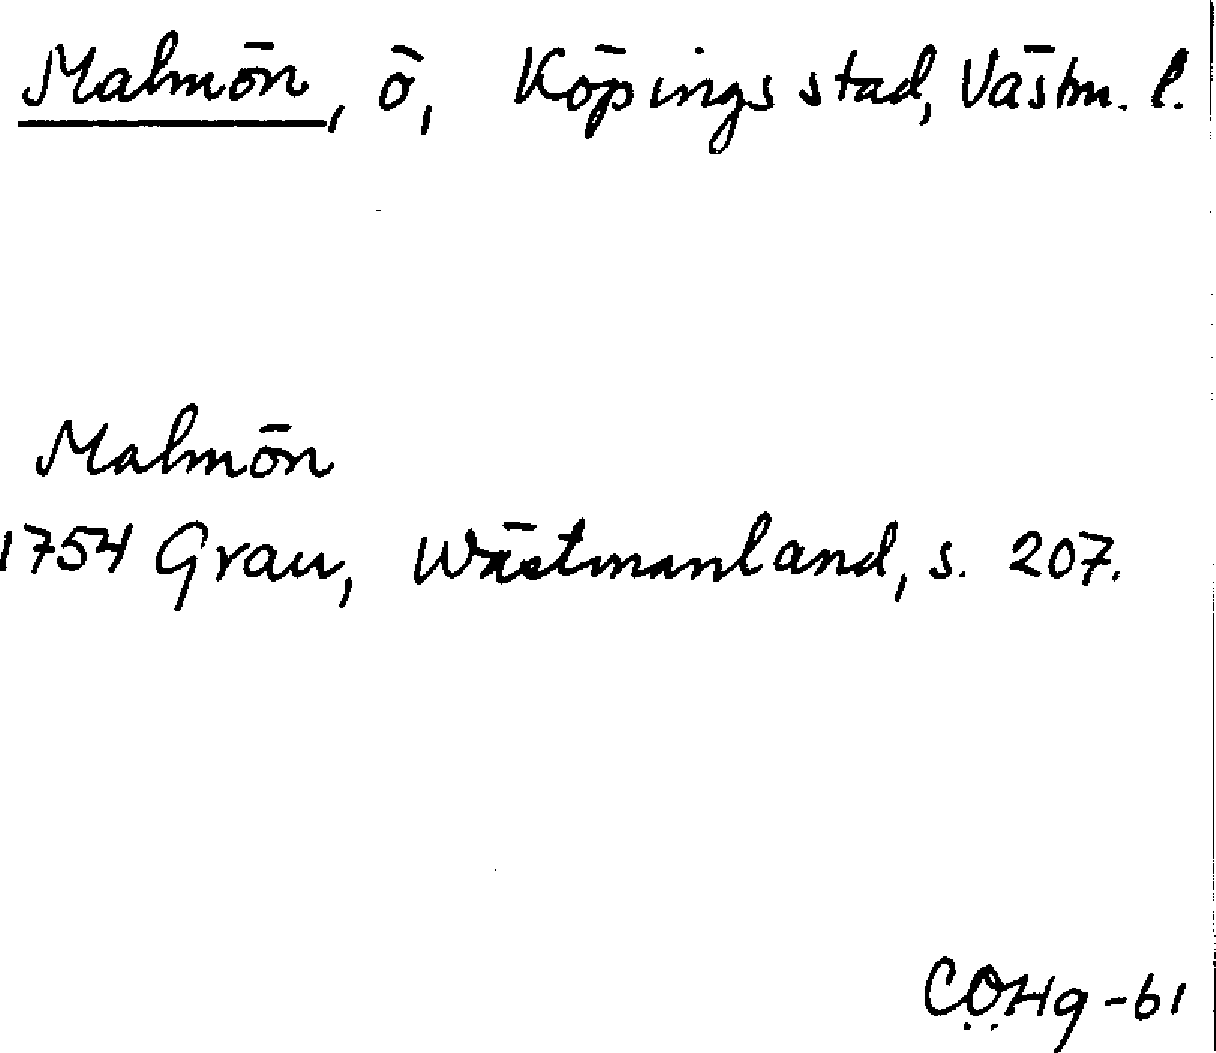 Malmön, ö, Köpings stad, Västm. l.
Malmön
1754 Grau, Wästmanland, s. 207.
CÖHg-61